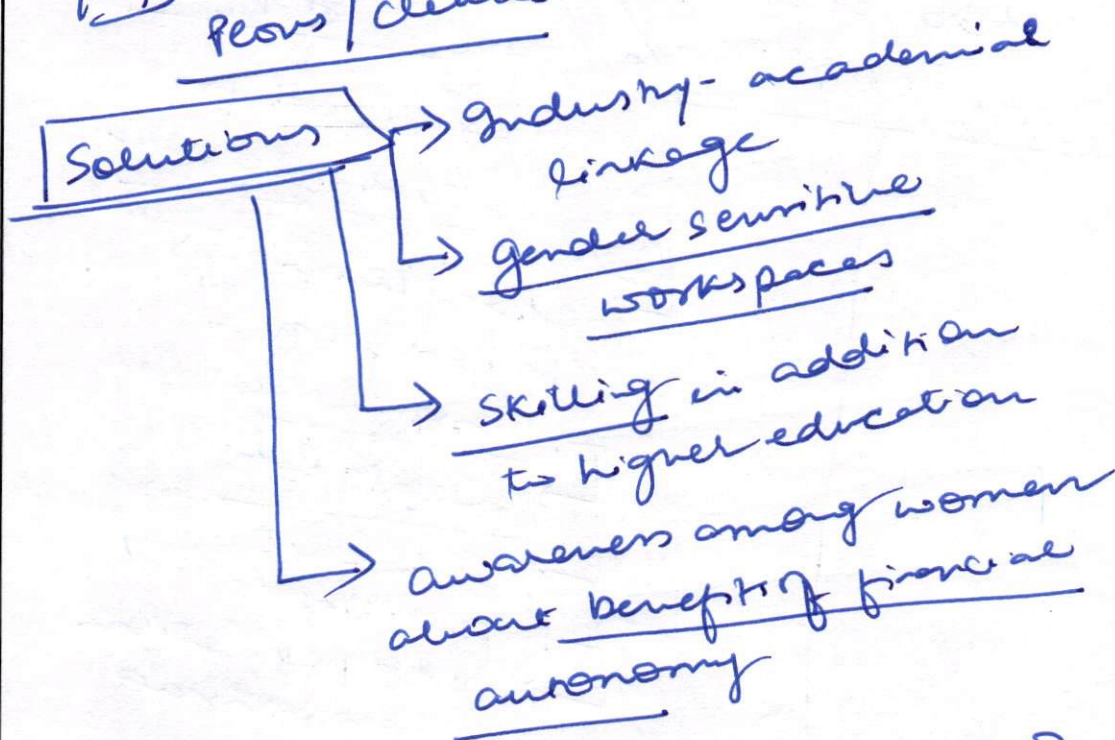 Peons /
Solutions
Industry - academial
linkage
gender sensitive
workspaces
skilling in addition
to higher education
awareness among women
about benefits of financial
autonomy